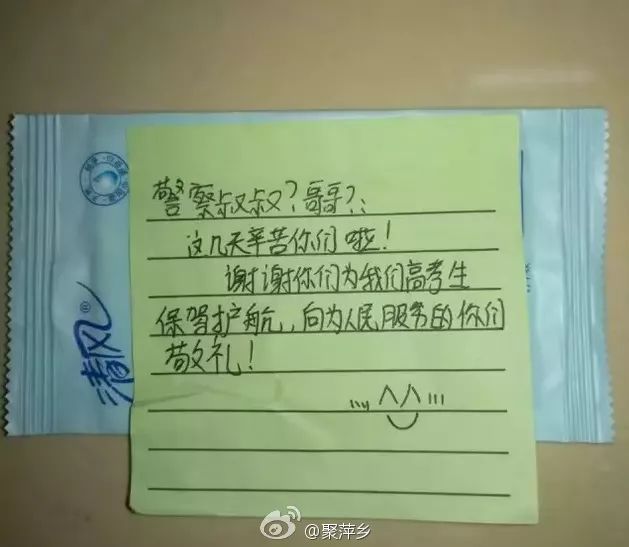 警察叔叔?哥哥?:
这几天辛苦你们啦!
谢谢你们为我们高考生
保驾护航,向为人民服务的你们
敬礼!
清风®
@聚萍乡